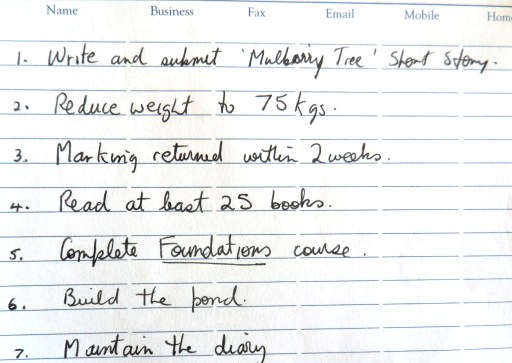 Name Business Fax Email Mobile Hom
1. Write and submit 'Mulberry Tree' Short Story.
2. Reduce weight to 75kgs.
3. Marking returned within 2 weeks.
4. Read at least 25 books.
5. Complete Foundations course.
6. Build the pond.
7. Maintain the diary